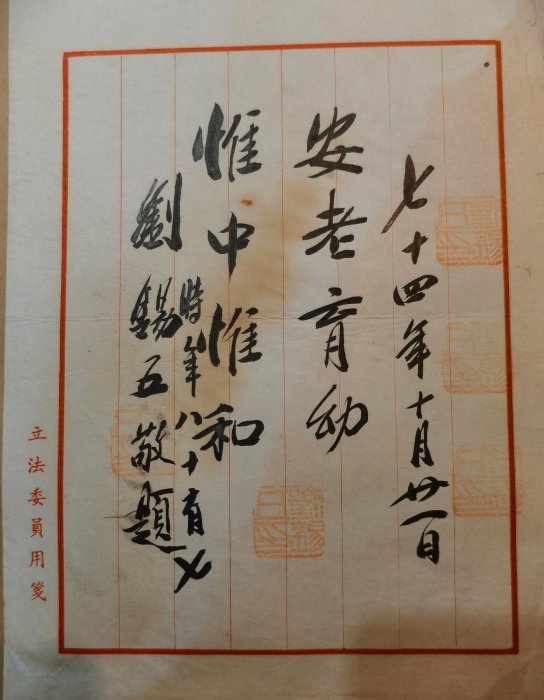 七十四年十月廿一日
安老育幼
惟中惟和
時年八十有乂
劉錫五敬題
立法委員用箋